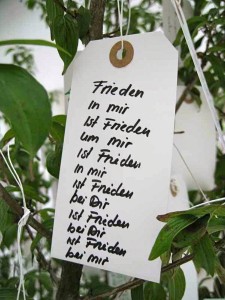 Frieden
in mir
ist Frieden
um mir
ist Frieden
in mir
ist Frieden
bei Dir
ist Frieden
bei Dir
ist Frieden
bei mir